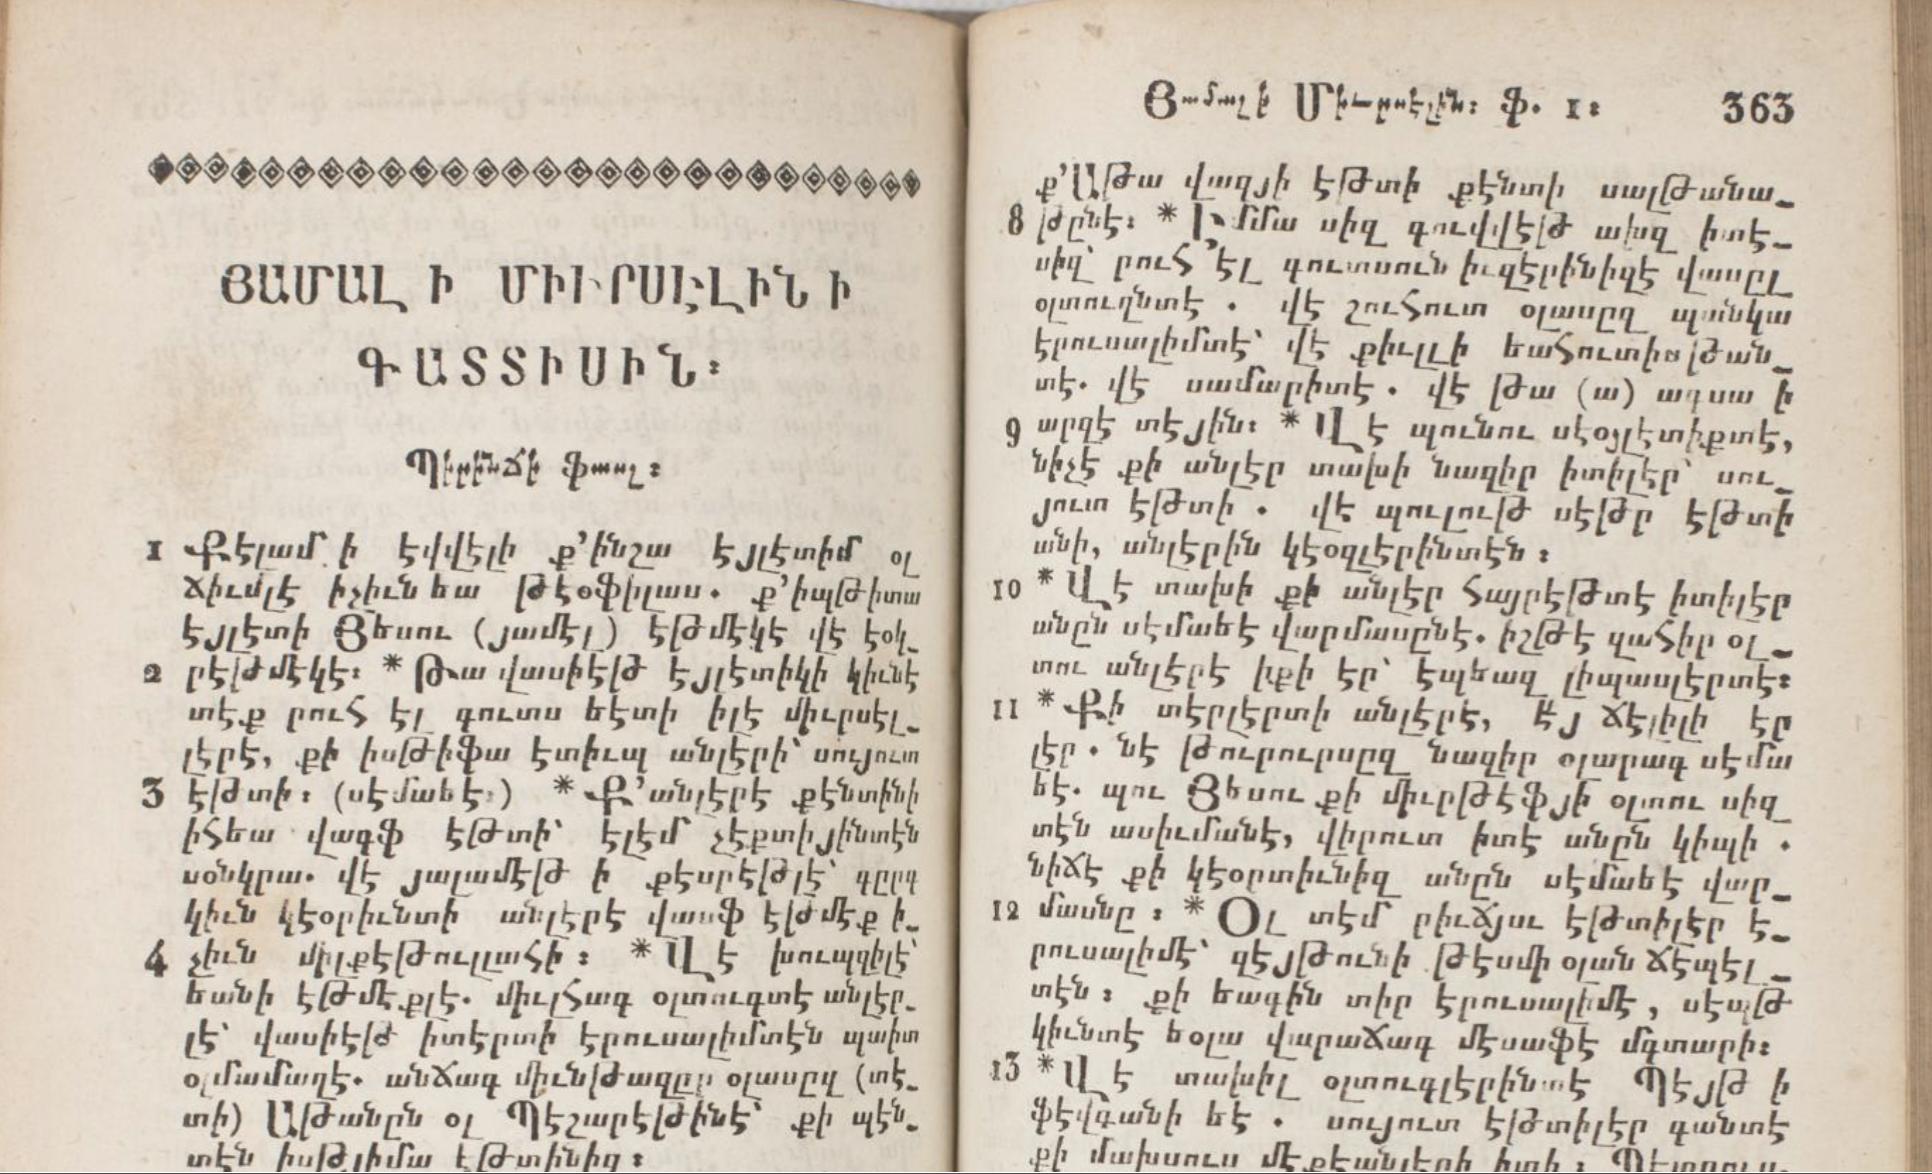 ՅԱՄԱԼ Ի ՄԻՒՐՍԷԼԻՆ Ի
ԳԱՏՏԻՍԻՆ։
Պիրինճի ֆասլ։
1 Քէլամ ի էվվէլի ք՚ինշա էյլէտիմ օլ
ճիւմլէ իչիւն եա թէօֆիլաս. ք՚իպթիտա
էյլէտի Յեսու (յամէլ) էթմէկէ վէ էօկ֊
2 րէթմէկէ։ * Թա վասիէթ էյլէտիկի կիւնէ
տէք րուհ էլ գուտս եէտի իլէ միւրսէլ֊
լէրէ, քի իսթիֆա էտիւպ անլէրի՝ սույուտ
3 էթտի։ (սէմաեէ։) * Ք՚անլէրէ քէնտինի
իհեա վագֆ էթտի՝ էլէմ չէքտիյինտէն
սօնկրա. վէ յալամէթ ի քէսրէթլէ՝ գըրգ
կիւն կէօրիւնտի անլէրէ վասֆ էթմէք ի֊
4 չիւն միլքէթուլլահի։ * Վէ խուպզիլէ՝
եանի էթմէքլէ. միւլհագ օլտուգտէ անլէր֊
լէ՝ վասիէթ իտէրտի էրուսալիմտէն պաիտ
օլմամաղէ. անճագ միւնթազըր օլասըզ (տէ֊
տի) Աթանըն օլ Պէշարէթինէ՝ քի պէն֊
տէն իսթյիմա էթտինիզ։
Յամալ ի Միւրսէլին։ ֆ. 1։ 363
ք՚Աթա վազյի էթտի քէնտի սալթանա֊
8 թընէ։ * Իմմա սիզ գուվվէթ ախզ իտէ֊
սիզ՝ րուհ՚էլ գուտսուն իւզէրինիզէ վասըլ
օլտուղնտէ. վէ շուհուտ օլասըզ պանկա
էրուսալիմտէ՝ վէ քիւլլի եահուտիսթան֊
տէ. վէ սամարիտէ. վէ թա (ա) ագսա ի
9 արզէ տէյին։ * Վէ պունու սէօյլէտիքտէ,
նիչէ քի անլէր տախի նազիր իտիլէր՝ սու֊
յուտ էթտի. վէ պուլութ սէթր էթտի
անի, անլէրին կէօզլէրինտէն։
10 * Վէ տախի քի անլէր հայրէթտէ իտիլէր
անըն սէմաեէ վարմասընէ. իշթէ զահիր օլ֊
տու անլէրէ իքի էր՝ էպեազ լիպասլէրտէ։
11 * Քի տէրլէրտի անլէրէ, Էյ ճէլիլի էր
լէր. նէ թուրուրսըզ նազիր օլարագ սէմա
եէ. պու Յեսու քի միւրթէֆյի օլտու սիզ
տէն ասիւմանէ, վիրուտ իտէ անըն կիպի.
նիճէ քի կէօրտիւնիզ անըն սէմաեէ վար֊
12 մասնը։ * Օլ տէմ րիւճյսւ էթտիլէր է֊
րուսալիմէ՝ զէյթունի թէսմի օլան ճէպէլ֊
տէն։ քի եագին տիր էրուսալիմէ, սէպթ
կիւնտէ եօլս վարաճագ մէսաֆէ մգտարի։
13 * Վէ տախիլ օլտուգլէրինտէ Պէյթ ի
ֆէվգանի եէ. սույուտ էթտիլէր գանտէ
քի մախսուս մէքէանլէրի իտի։ Պէտրուս֊